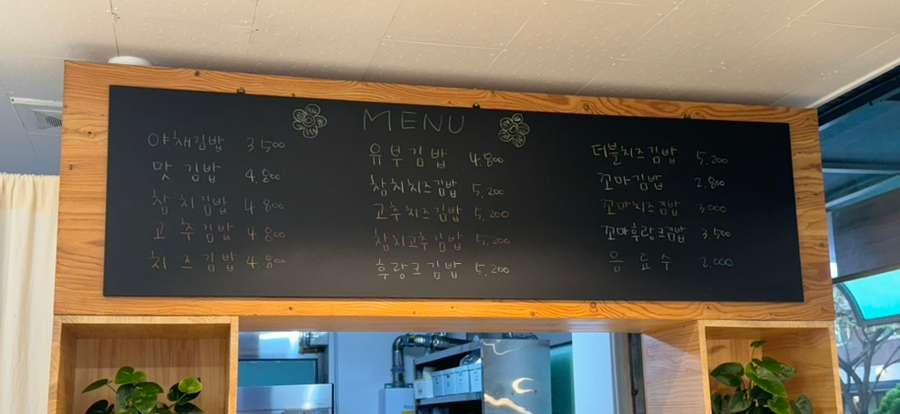 MENU
야채김밥 3500
맛김밥 4.800
참치김밥 4.800
고추김밥 4.800
치즈김밥 4.800
유부김밥 4.800
참치치즈김밥 5,200
고추치즈김밥 5,200
참치고추김밥 5,200
후랑크김밥 5,200
더블치즈김밥 5,200
꼬마김밥 2.800
꼬마치즈김밥 3,000
꼬마후랑크김밥 3,500
음료수 2,000